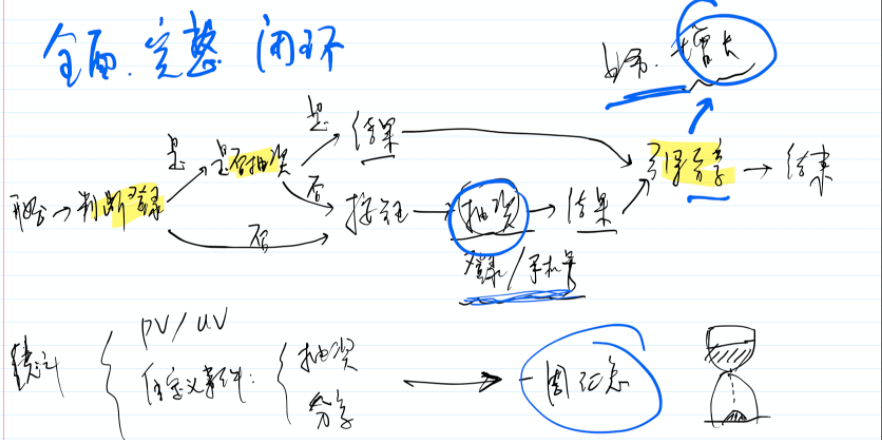 全面、完整 闭环
业务、增长
开始→判断登录
是 是否抽奖 是 结果
引导分享→结束
否 按钮→抽奖→结果
否
登录/手机号
统计 PV/UV
自定义事件: 抽奖
分享
一周汇总